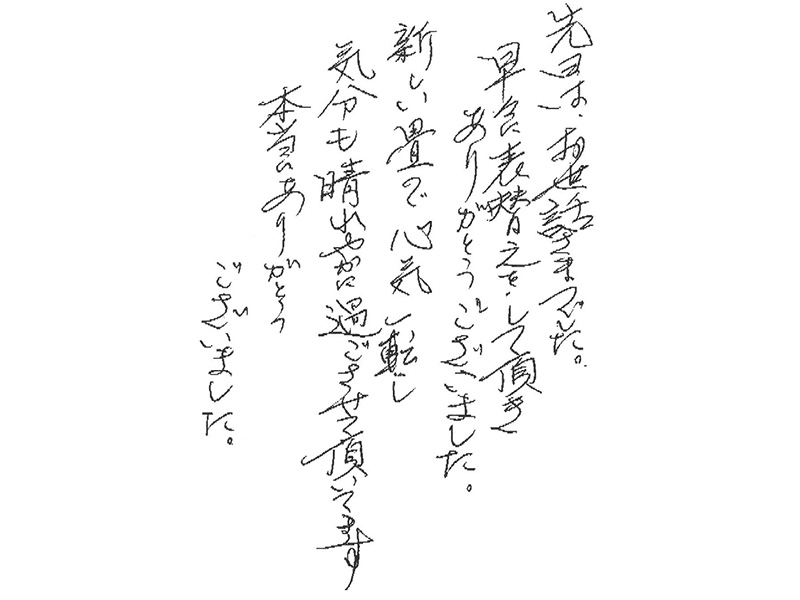 先日は、お世話さまでした。
早急に表替えをして頂き
ありがとうございました。
新しい畳で心気一転し
気分も晴れやかに過ごさせて頂いてます
本当にありがとう
ございました。